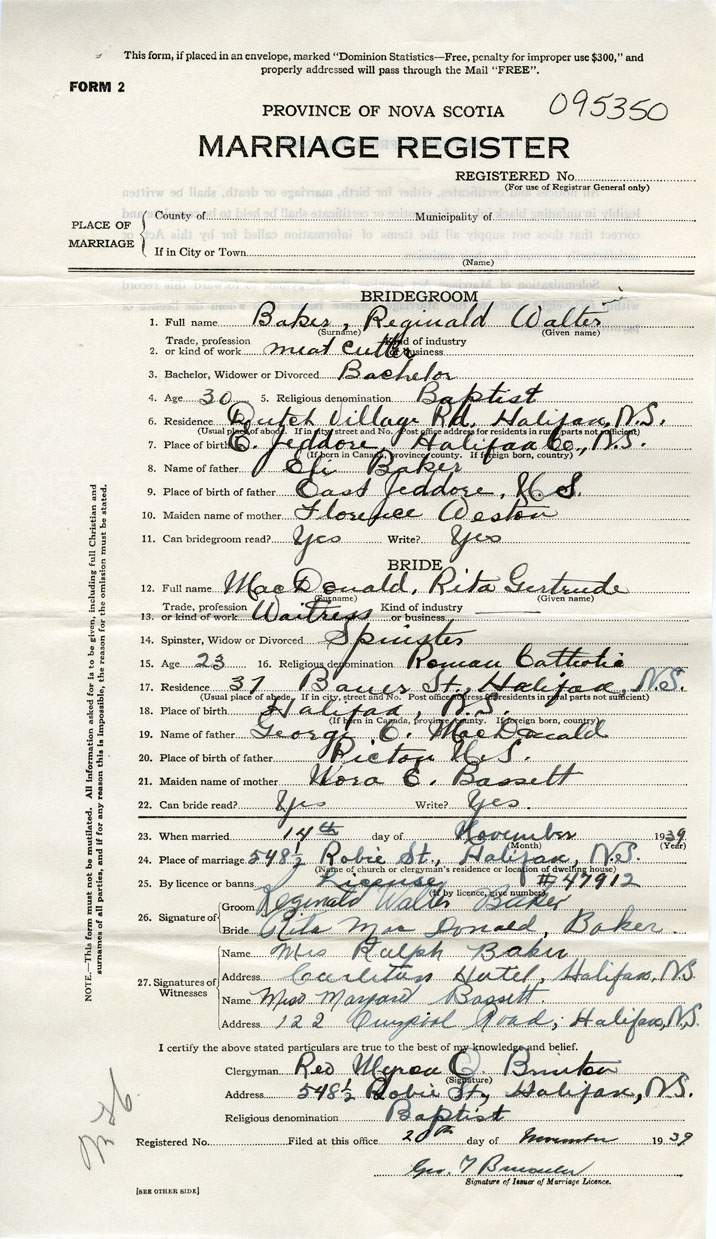 This form, if placed in an envelope, marked "Dominion Statistics—Free, penalty for improper use $300," and
properly addressed will pass through the Mail "FREE".
FORM 2
095350
PROVINCE OF NOVA SCOTIA
MARRIAGE REGISTER
REGISTERED No.
(For use of Registrar General only)
PLACE OF MARRIAGE
County of Municipality of
If in City or Town
(Name)
BRIDEGROOM
1. Full name Baker, Reginald Walter
(Surname) (Given name)
2. Trade, profession or kind of work meat cutter Kind of industry or business
3. Bachelor, Widower or Divorced Bachelor
4. Age 30 5. Religious denomination Baptist
6. Residence Dutch Village Rd, Halifax, N.S.
(Usual place of abode. If in city, street and No. Post office address for residents in rural parts not sufficient)
7. Place of birth E. Jeddore, Halifax Co., N.S.
(If born in Canada, province, county. If foreign born, country)
8. Name of father Eli Baker
9. Place of birth of father East Jeddore, N.S.
10. Maiden name of mother Florence Weston
11. Can bridegroom read? Yes Write? Yes
BRIDE
12. Full name MacDonald, Rita Gertrude
(Surname) (Given name)
13. Trade, profession or kind of work Waitress Kind of industry or business
14. Spinster, Widow or Divorced Spinster
15. Age 23 16. Religious denomination Roman Catholic
17. Residence 37 Bauer St., Halifax, N.S.
(Usual place of abode. If in city, street and No. Post office address for residents in rural parts not sufficient)
18. Place of birth Halifax, N.S.
(If born in Canada, province, county. If foreign born, country)
19. Name of father George C. MacDonald
20. Place of birth of father Pictou N.S.
21. Maiden name of mother Nora E. Bassett
22. Can bride read? Yes Write? Yes.
23. When married 14th day of November 1939
(Month) (Year)
24. Place of marriage 548½ Robie St., Halifax, N.S.
(Name of church or clergyman's residence or location of dwelling house)
25. By licence or banns License #47912
(If by licence, give number)
26. Signature of
Groom Reginald Walter Baker
Bride Rita Mac Donald, Baker.
27. Signatures of Witnesses
Name Mrs Ralph Baker
Address Carleton Hotel, Halifax, N.S.
Name Miss Margaret Bassett.
Address 122 Road, Halifax, N.S.
I certify the above stated particulars are true to the best of my knowledge and belief.
Clergyman Rev Myron O. Brinton
(Signature)
Address 548½ Robie St, Halifax, N.S.
Religious denomination Baptist
Registered No. Filed at this office 20th day of November 1939
Geo. T
Signature of Issuer of Marriage Licence.
[SEE OTHER SIDE]
NOTE.—This form must not be mutilated. All information asked for is to be given, including full Christian and
surnames of all parties, and if for any reason this is impossible, the reason for the omission must be stated.